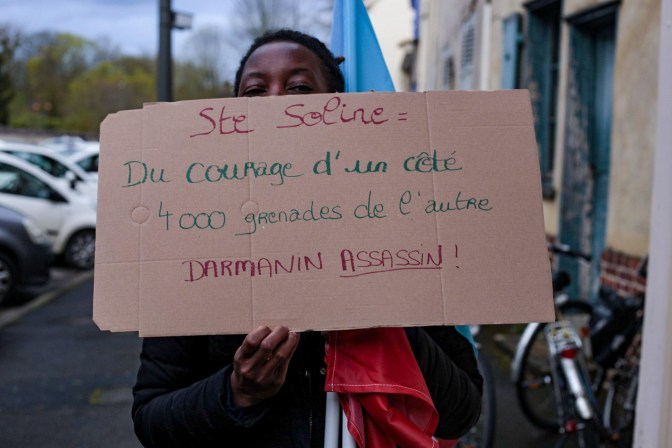 Ste Soline =
Du courage d'un côté
4000 grenades de l'autre
DARMANIN ASSASSIN !